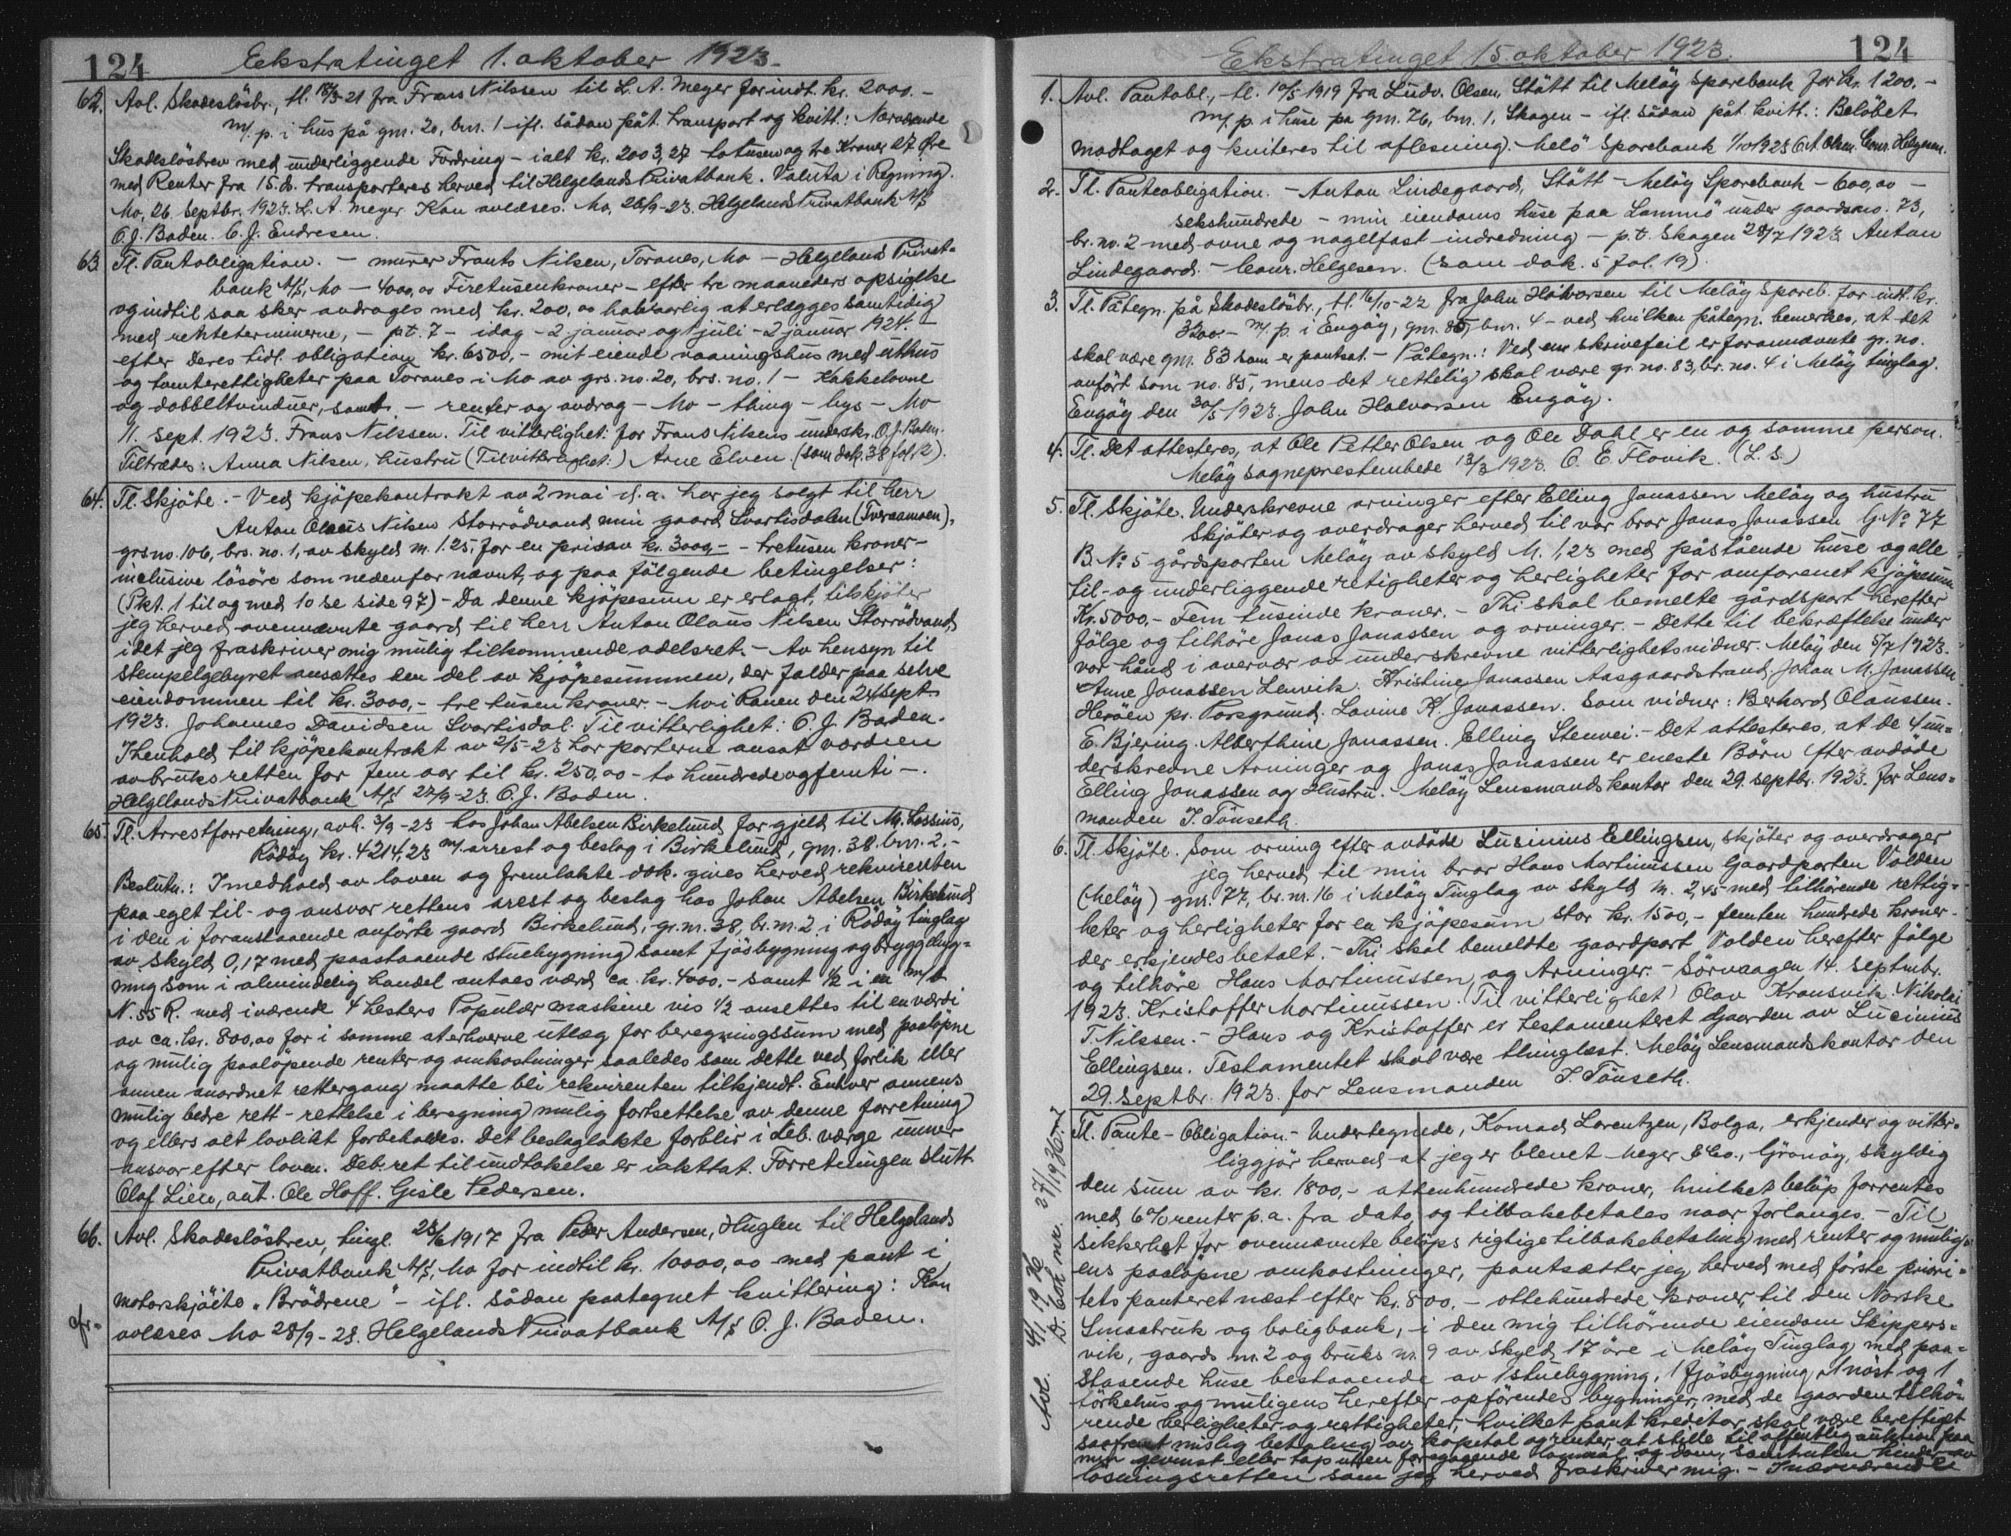 124 Ekstratinget 1. oktober 1923.
62. Avl. Skadesløsbr., tl. 18/3-21 fra Frans Nilssen til L. A. Meyer for indt. kr. 2000.-
m/ p. i hus på gnr. 20, bnr. 1 - ifl. sådan påt. transport og kvitt.: Nærværende
Skadesløsbrev med underliggende Fordring - ialt kr. 2003,27 totusen og tre Kroner 27 Øre
med Renter fra 15. ds. transporteres herved til Helgelands Privatbank. Valuta i Regning.
Mo, 26 Septbr. 1923. L. A. Meyer. Kan avlæses. Mo, 28/9-23. Helgelands Privatbank A/S
O. J. Baden. C. J. Endresen.
63. Tl. Pantobligation. - murer Frants Nilsen, Toranes, Mo - Helgeland Privat-
bank A/S, Mo - 4000,00 Firetusenkroner - efter tre maaneders opsigelse
og indtil saa sker avdrages med kr. 200,00 halvaarlig at erlægges samtidig
med renteterminerne, - pt. 7 - idag - 2 januar og juli - 2 januar 1924. -
efter deres tidl. obligation kr. 6500,- mit eiende vaaningshus med uthus
og tomterettigheter paa Toranes i Mo av grs. no. 20, brs. no. 1 - Kakkelovne
og dobbeltvinduer, samt - renter og avdrag - Mo - thing - lys - Mo
11. sept. 1923. Frans Nilssen. Til vitterlighet: for Frans Nilsens underskr. O. J. Baden.
Tiltrædes: Anna Nilsen, hustru (Til vitterlighet:) Arne Elven. (som dok. 38 fol. 12).
64. Tl. Skjøte. - Ved kjøpekontrakt av 2 mai d. a. har jeg solgt til herr
Anton Olaus Nilsen Storrødvand min gaard Svartisdalen (Tveraamoen),
grs no. 106, brs. no. 1, av skyld m. 1.25, for en pris av kr. 3000,- - tretusen kroner -
inclusive løsøre som nedenfor nævnt, og paa følgende betingelser:
(Pkt. 1 til og med 10 se side 97) - Da denne kjøpesum er erlagt, tilskjøter
jeg herved ovennævnte gaard til herr Anton Olaus Nilsen Storrødvand,
idet jeg fraskriver mig mulig tilkommende odelsret. - Av hensyn til
stempelgebyret ansættes den del av kjøpesummen, der falder paa selve
eiendommen til kr. 3000,- tre tusen kroner. - Mo i Ranen den 24 sept.
1923. Johannes Davidsen Svartisdal. Til vitterlighet: O. J. Baden.
I henhold til kjøpekontrakt av 2/5-23 har parterne ansat værdien
av bruksretten for fem aar til kr. 250,00 - to hundredeogfemti -.
Helgelands Privatbank A/S 27/9-23. O. J. Baden.
65. Tl. Arrestforretning, avh. 3/9-23 hos Johan Abelsen Birkelund for gjeld til M. Lossius,
Rødøy kr. 4214,23 m/ arrest og beslag i Birkelund, gnr. 38. bnr. 2. -
Beslutn.: I medhold av loven og fremlakte dok. gives herved rekvirenten
paa eget til- og ansvar rettens arest og beslag hos Johan Abelsen Birkelund
i den i foranstaaende anførte gaard Birkelund, gr. nr. 38, br. nr. 2 i Rødøy tinglag
av skyld 0,17 med paastaaende stuebygning samt fjøsbygning og bryggebyg-
ning som i almindelig handel antaes værd ca. kr. 4000.- samt 1/2 i en m/b
N. 55 R. med iværende 4 hesters Populær maskine vis 1/2 ansettes til en værdi
av ca. kr. 800,00 for i samme at erhverve utlæg for beregningssum med paaløpne
og mulig paaløpende renter og omkostninger saaledes som dette ved forlik eller
annen anordnet rettergang maatte bli rekvirenten tilkjendt. Enhver annens
mulig bedre rett - rettelse i beregning mulig fortsettelse av denne forretning
og ellers alt lovlikt forbeholdes. Det beslaglakte forblir i Deb. værge unner
ansvar efter loven. Deb. ret til undtakelse er iakttat. Forretningen slutt.
Olaf Lien, aut. Ole Hoff. Gisle Pedersen.
66. Avl. Skadesløsbrev, tingl. 28/6 1917 fra Peder Andersen, Huglen til Helgelands
Privatbank A/S, Mo for indtil kr. 10000,00 med pant i
motorskjøite "Brødrene" - ifl. sådan paategnet kvittering: Kan
avlæses Mo 28/9-23. Helgelands Privatbank A/S O. J. Baden.
Ekstratinget 15. oktober 1923. 124
1. Avl. Pantobl., tl. 10/5 1919 fra Ludv. Olsen, Støtt til Meløy Sparebank for kr. 1200.-
m/ p. i huse på gnr. 76, bnr. 1, Skagen - ifl. sådan påt. kvitt.: Beløbet
modtaget og kviteres til aflesning. Melø Sparebank 1/10 1923 O. A. Olsen. Conr. Helgesen.
2. Tl. Panteobligation. - Anton Lindegaard, Støtt - Meløy Sparebank - 600,00 -
sekshundrede - min eiendoms huse paa Lammø under gaardsno. 73,
br. no. 2 med ovne og nagelfast indredning - p.t. Skagen 28/7 1923. Anton
Lindegaard. - Conr. Helgesen. (som dok. 5 fol. 19).
3. Tl. Påtegn. på Skadesløsbr., tl. 16/10-22 fra John Halvorsen til Meløy Spareb. for indt. kr.
3200.- m/ p. i Engøy, gnr. 85, bnr. 4 - ved hvilken påtegn. bemerkes, at det
skal være gnr. 83 som er pantsat. - Påtegn.: Ved en skrivefeil er forannævnte gr. no.
anført som no. 85, mens det rettelig skal være gr. no. 83, br. no. 4 i Meløy tinglag.
Engøy den 30/5 1923. John Halvorsen Engøy.
4. Tl. Det attesteres, at Ole Petter Olsen og Ole Dahl er en og samme person.
Meløy sogneprestembede 13/3 1923. O. E. Flovik. (L. S.)
5. Tl. Skjøte. Underskrevne arvinger efter Elling Jonassen Meløy og hustru
skjøter og overdrager herved til vor bror Jonas Jonassen G. No 77
B. No 5 gårdsparten Meløy av skyld M. 1,23 med påstående huse og alle
til- og underliggende retigheter og herligheter for omforenet kjøpesum
Kr. 5000,- Fem tusinde kroner. - Thi skal bemelte gårdspart herefter
følge og tilhøre Jonas Jonassen og arvinger. - Dette til bekræftelse under
vor hånd i overvær av underskrevne vitterlighetsvidner. Meløy den 5/7 1923.
Anne Jonassen Lenvik. Kristine Jonassen Aasgaardstrand, Johan M. Jonassen
Herøen pr. Porsgrund. Lovine K. Jonassen. Som vidner: Berhard Olaussen.
E. Bjering. Alberthine Jonassen. Elling Stenvei. - Det attesteres, at de 4 un-
derskrevne Arvinger og Jonas Jonassen er eneste Børn efter avdøde
Elling Jonassen og Hustru. - Meløy Lensmandskontor den 29. septbr. 1923. for Lens-
manden J. Tønseth.
6. Tl. Skjøte. Som arving efter avdøde Lusinius Ellingsen, skjøter og overdrager
jeg herved til min bror Hans Martinussen Gaardparten Volden
(Meløy) gnr. 77, br. nr. 16 i Meløy Tinglag av skyld m. 2,45 med tilhørende rettig-
heter og herligheter for en kjøpesum stor kr. 1500,- femten hundrede kroner -
der erkjendes betalt. - Thi skal bemeldte gaardpart Volden herefter følge
og tilhøre Hans Martinussen, og Arvinger. - Sørvaagen 14. septmbr.
1923. Kristoffer Martinussen. (Til vitterlighet) Olav Kransvik. Nikolai
T. Nilssen. - Hans og Kristoffer er testamenteret Gaarden av Lucinius
Ellingsen. Testamentet skal være thinglæst. Meløy Lensmandskontor den
29. septbr. 1923. for Lensmanden J. Tønseth.
Tl. Pante-Obligation. - Undertegnede, Konrad Lorentzen, Bolga, erkjender og vitter-
liggjør herved at jeg er blevet Meyer & Co., Grønøy, skyldig
den sum av kr. 1800,- attenhundrede kroner, hvilket beløp forrentes
med 6% renter p. a. fra dato og tilbakebetales naar forlanges. - Til
sikkerhet for ovennævnte beløps rigtige tilbakebetaling med renter og mulig-
ens paaløpne omkostninger, pantsætter jeg herved med første priori-
tets panteret næst efter kr. 800.- ottehundrede kroner, til den Norske
Smaabruk og boligbank, - i den mig tilhørende eiendom Skippers-
vik, gaards nr. 2 og bruks nr. 9 av skyld 17 øre i Meløy Tinglag med paa-
staaende huse bestaaende av 1 stuebygning, 1 fjøsbygning, 1 nøst og 1
tørkehus og muligens herefter opførendes bygninger, med de gaarden tilhø-
rende herligheter og rettigheter, hvilket pant kreditor skal være berettiget
saafremt mislig betaling av kapetal og renter, at stille til offentlig auktion paa
min gevinst eller tap uten foregaaende lovmaal og dom,
løsningsretten som jeg herved fraskriver mig. - I nærværende